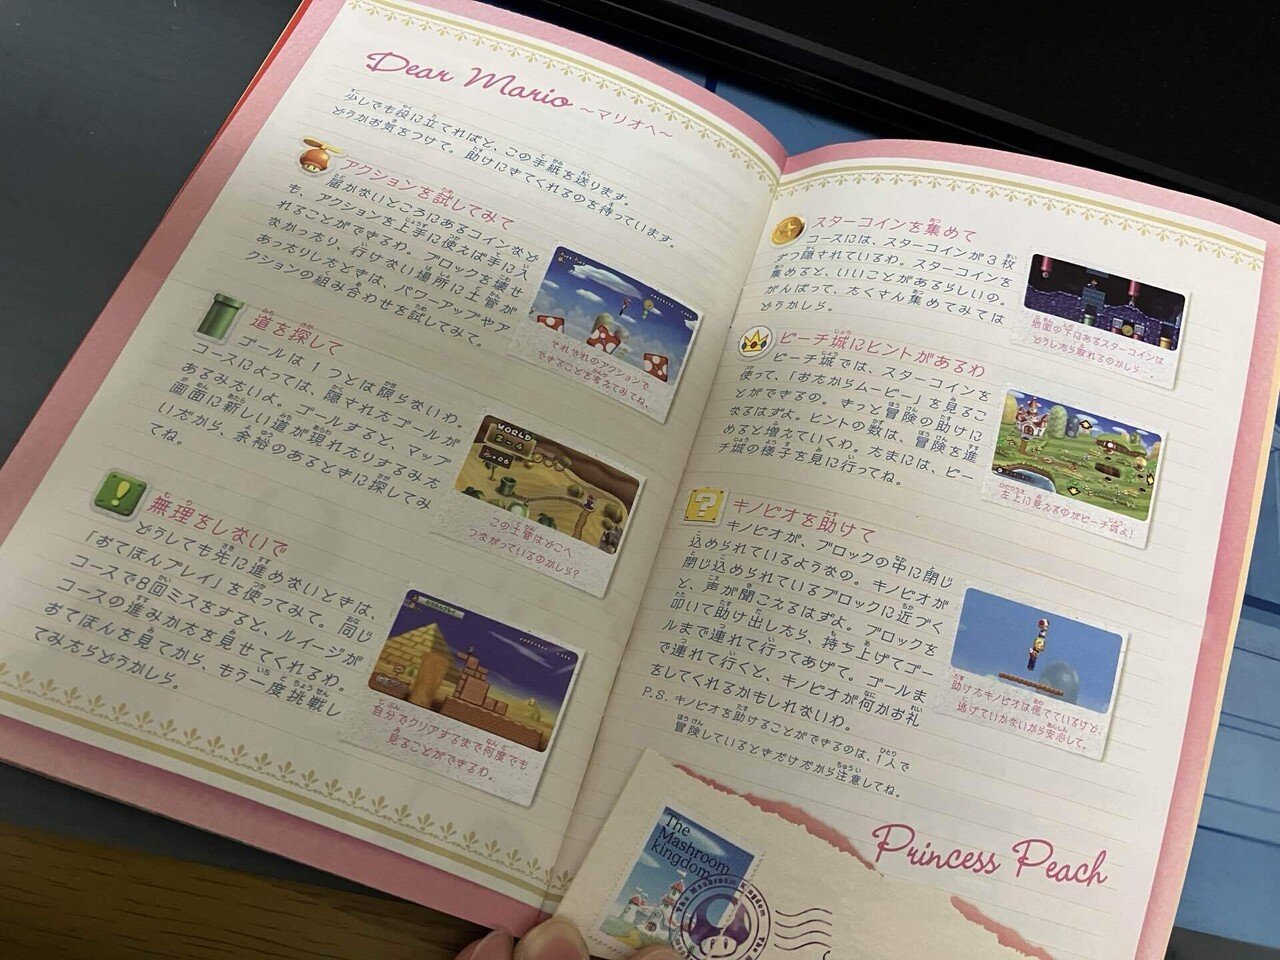 Dear Mario ～マリオへ～
少しでも役に立てればと、この手紙を送ります。
どうかお気をつけて。助けにきてくれるのを待っています。
アクションを試してみて
届かないところにあるコインなど
も、アクションを上手に使えば手に入
れることができるわ。ブロックを壊せ
なかったり、行けない場所に土管が
あったりしたときは、パワーアップやア
クションの組み合わせを試してみて。
それぞれのアクションで
できることを考えてみてね。
道を探して
ゴールは1つとは限らないわ。
コースによっては、隠されたゴールが
あるみたいよ。ゴールすると、マップ
画面に新しい道が現れたりするみた
いだから、余裕のあるときに探してみ
てね。
WORLD
2-4
この土管はどこへ
つながっているのかしら?
無理をしないで
どうしても先に進めないときは、
「おてほんプレイ」を使ってみて。同じ
コースで8回ミスをすると、ルイージが
コースの進みかたを見せてくれるわ。
おてほんを見てから、もう一度挑戦し
てみたらどうかしら。
自分でクリアするまで何度でも
見ることができるわ。
スターコインを集めて
コースには、スターコインが3枚
ずつ隠されているわ。スターコインを
集めると、いいことがあるらしいの。
がんばって、たくさん集めてみては
どうかしら。
地面の下にあるスターコインは
どうしたら取れるのかしら…。
ピーチ城にヒントがあるわ
ピーチ城では、スターコインを
使って、「おたからムービー」を見るこ
とができるの。きっと冒険の助けに
なるはずよ。ヒントの数は、冒険を進
めると増えていくわ。たまには、ピー
チ城の様子を見に行ってね。
左上に見えるのがピーチ城よ!
キノピオを助けて
キノピオが、ブロックの中に閉じ
込められているようなの。キノピオが
閉じ込められているブロックに近づく
と、声が聞こえるはずよ。ブロックを
叩いて助け出したら、持ち上げてゴー
ルまで連れて行ってあげて。ゴールま
で連れて行くと、キノピオが何かお礼
をしてくれるかもしれないわ。
P.S. キノピオを助けることができるのは、1人で
冒険しているときだけだから注意してね。
助けたキノピオは慌てているけど、
逃げていかないから安心して。
Princess Peach
The
Mashroom
kingdom
The Mushroom Kingdom